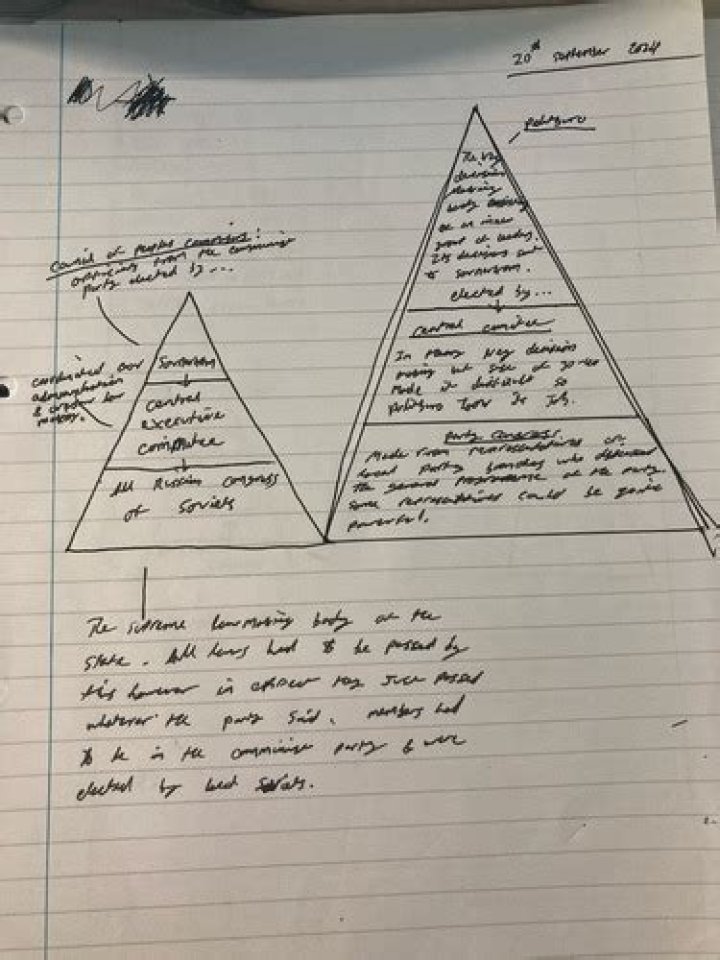 20th September 2024
Politburo
The key
decision
making
body
of leaders
Its decisions sent
to Sovnarkom.
elected by...
Central
In theory key decision
making but size of 30-40
made it difficult so
politburo took its job.
Party Congress:
Made from representatives of
local party branches who
the general programme of the party
some representatives could be quite
powerful.
Council of Peoples
from the communist
party elected by...
Sovnarkom
administration
&
central
executive
committee
All Russian congress
of Soviets
The supreme lawmaking body of the
state. All laws had to be passed by
this however in they just passed
whatever the party said. members had
to be in the communist party & were
elected by local Soviets.